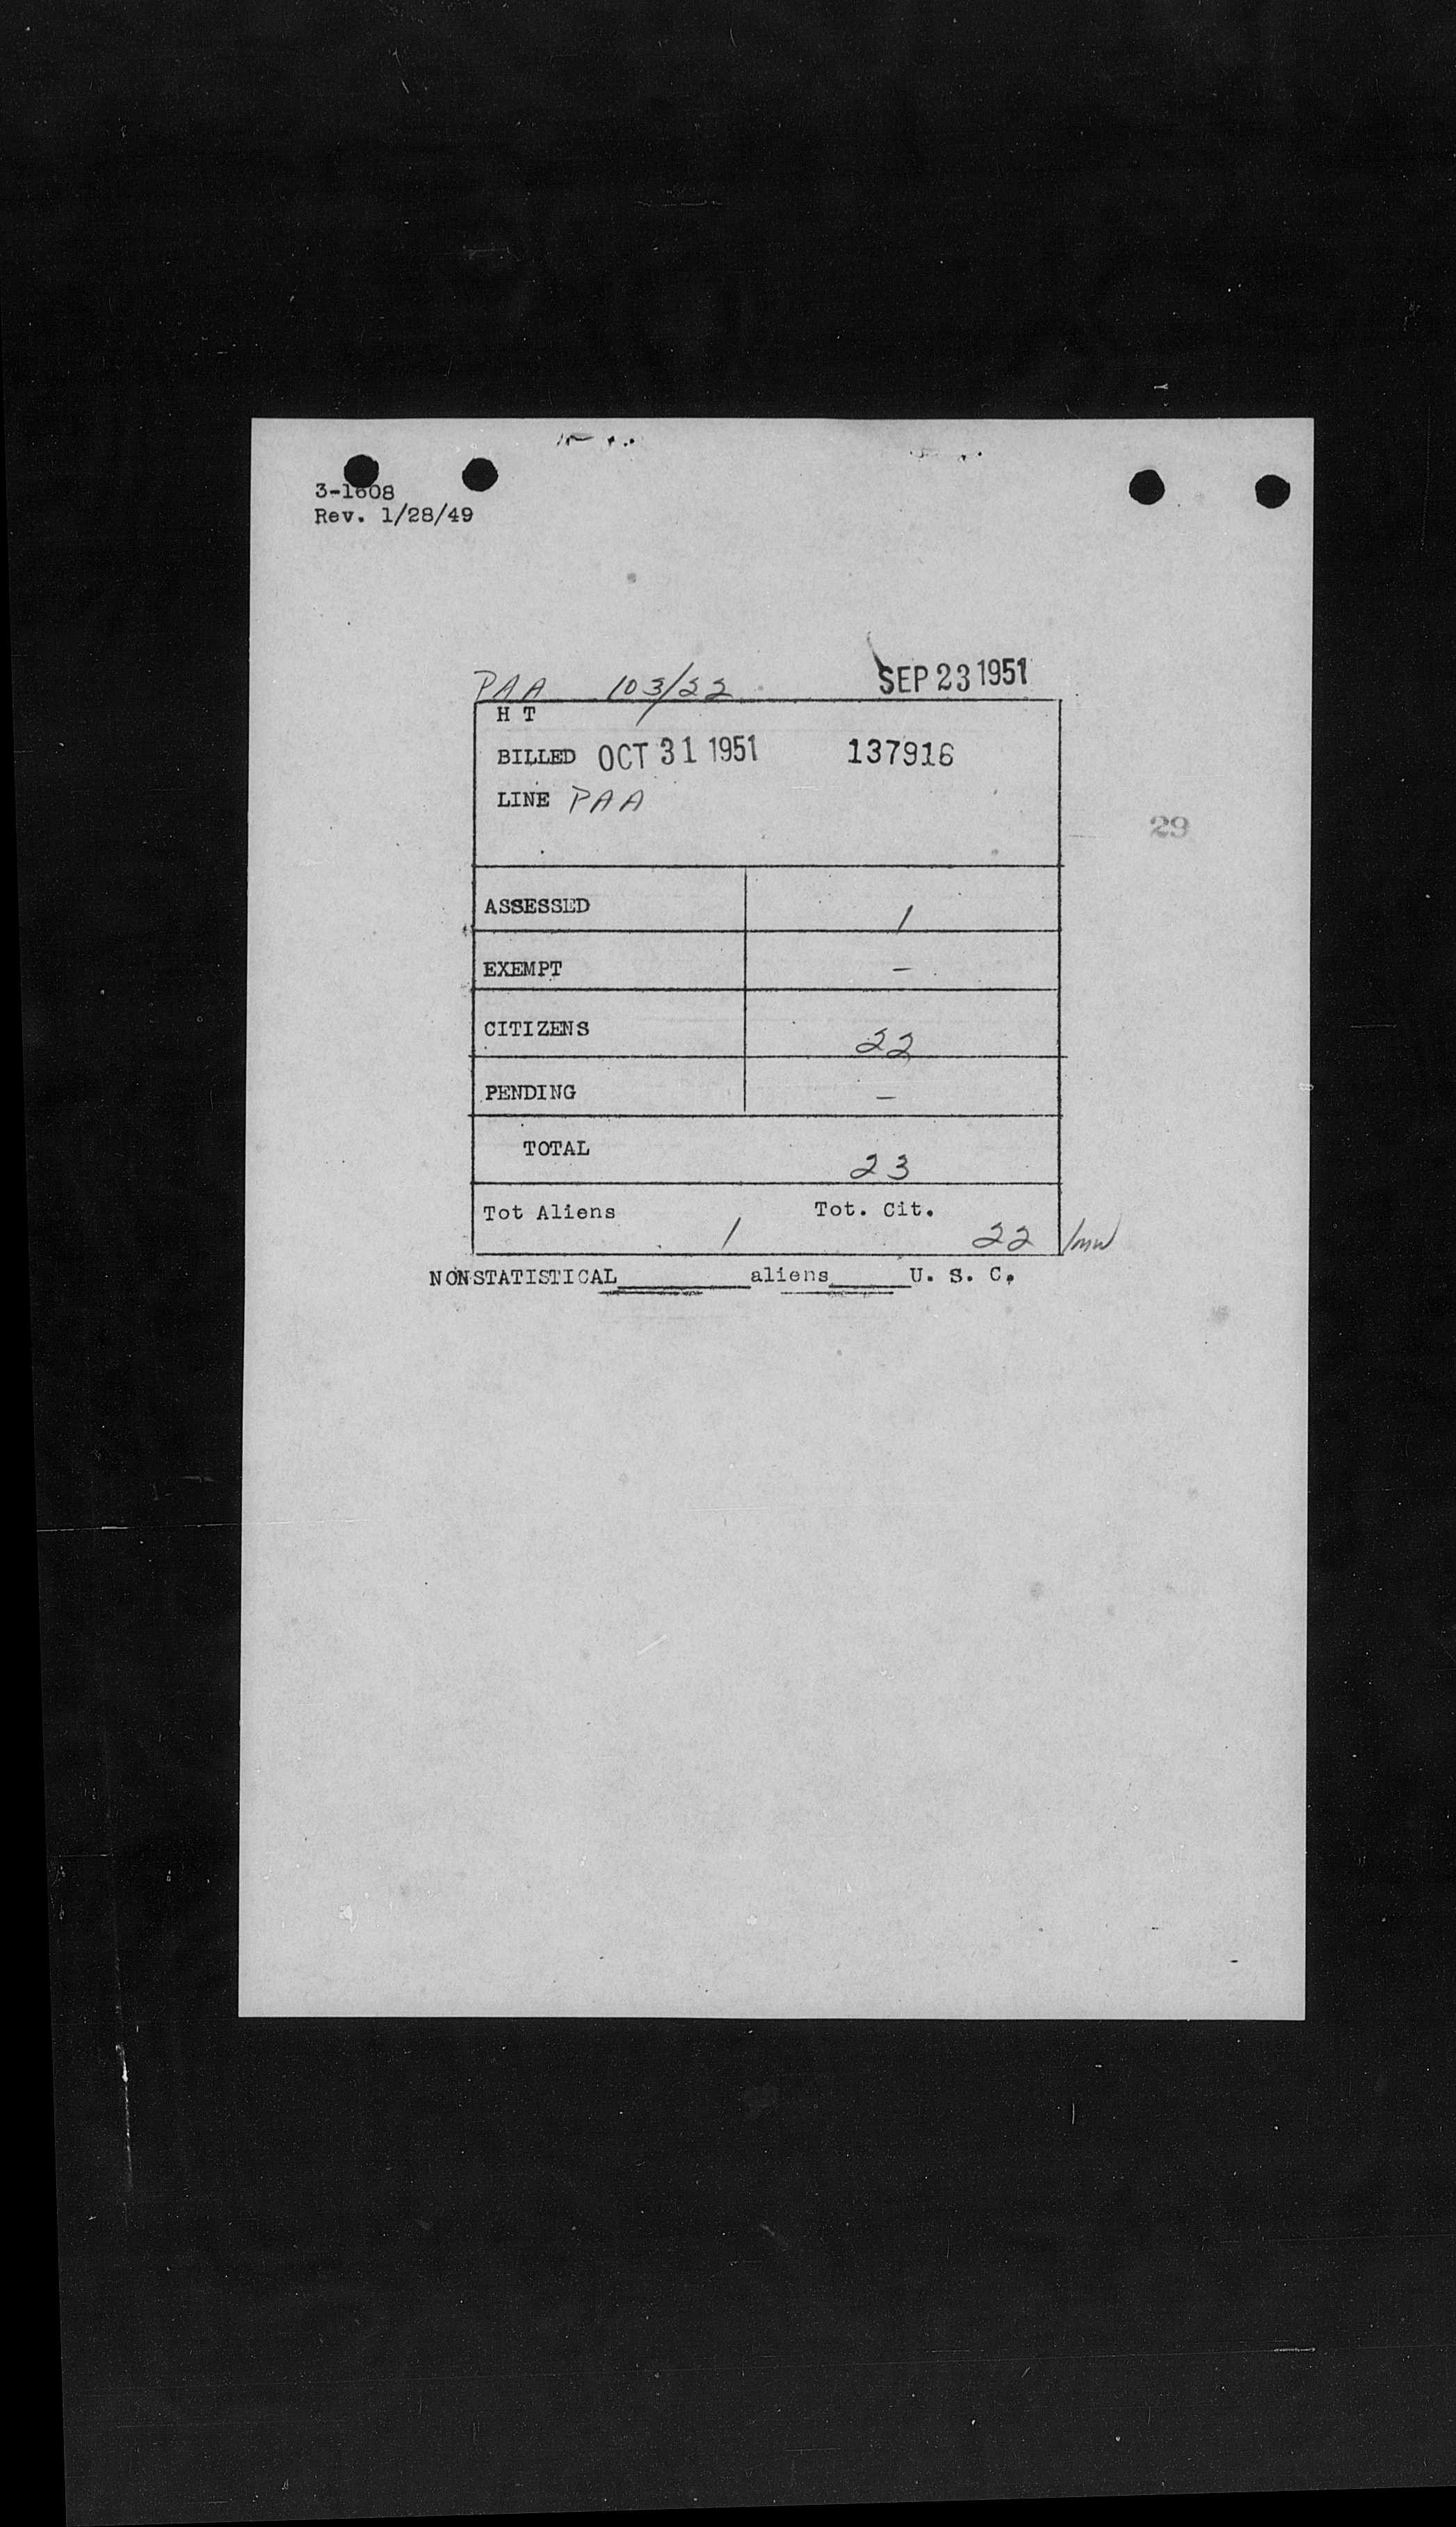 3-1608
Rev. 1/28/49
PAA 103/22 SEP 23 1951
H T
BILLED OCT 31 1951 137916
LINE PAA
29
ASSESSED 1
EXEMPT –
CITIZENS 22
PENDING –
TOTAL 23
Tot Aliens 1 Tot. Cit. 22 /mw
NONSTATISTICAL________aliens_____U. S. C.